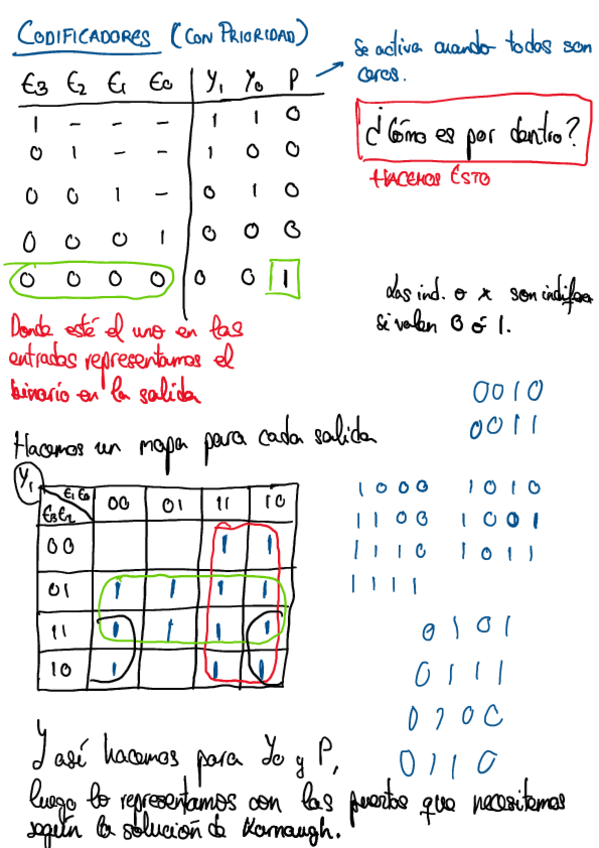 CODIFICADORES (CON PRIORIDAD)
Se activa cuando todos son
ceros.
E3 E2 E1 E0 Y1 Y0 P
1 - - - 1 1 0
0 1 - - 1 0 0
0 0 1 - 0 1 0
0 0 0 1 0 0 0
0 0 0 0 0 0 1
¿Cómo es por dentro?
HACEMOS ÉSTO
Las ind. o x son indifer
si valen 0 ó 1.
Donde esté el uno en las
entradas representamos el
binario en la salida
0010
0011
Hacemos un mapa para cada salida
Y1
E1E0
E3E2
00 01 11 10
00 1 1
01 1 1 1 1
11 1 1 1 1
10 1 1 1
1000 1010
1100 1001
1110 1011
1111
0101
0111
0100
0110
Y así hacemos para Y0 y P,
luego lo representamos con las puertas que necesitemos
según la solución de Karnaugh.